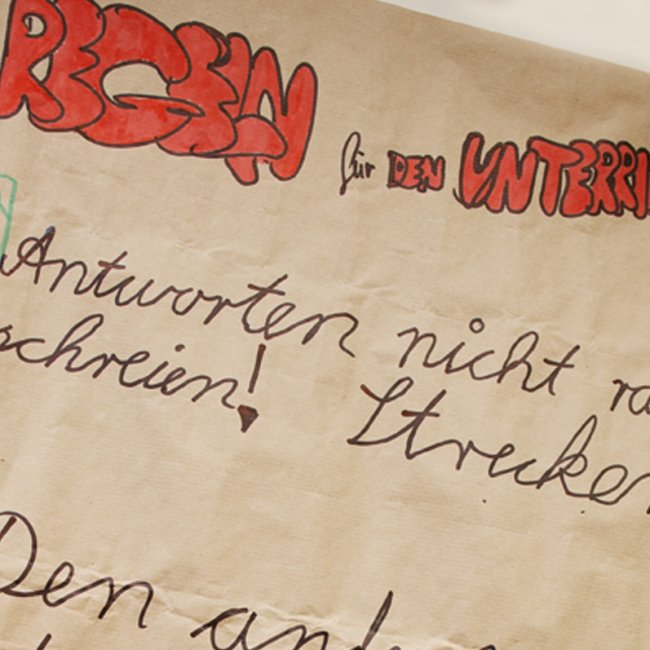 REGELN für DEN UNTERRI
Antworten nicht ra
schreien! Strecken
Den ande